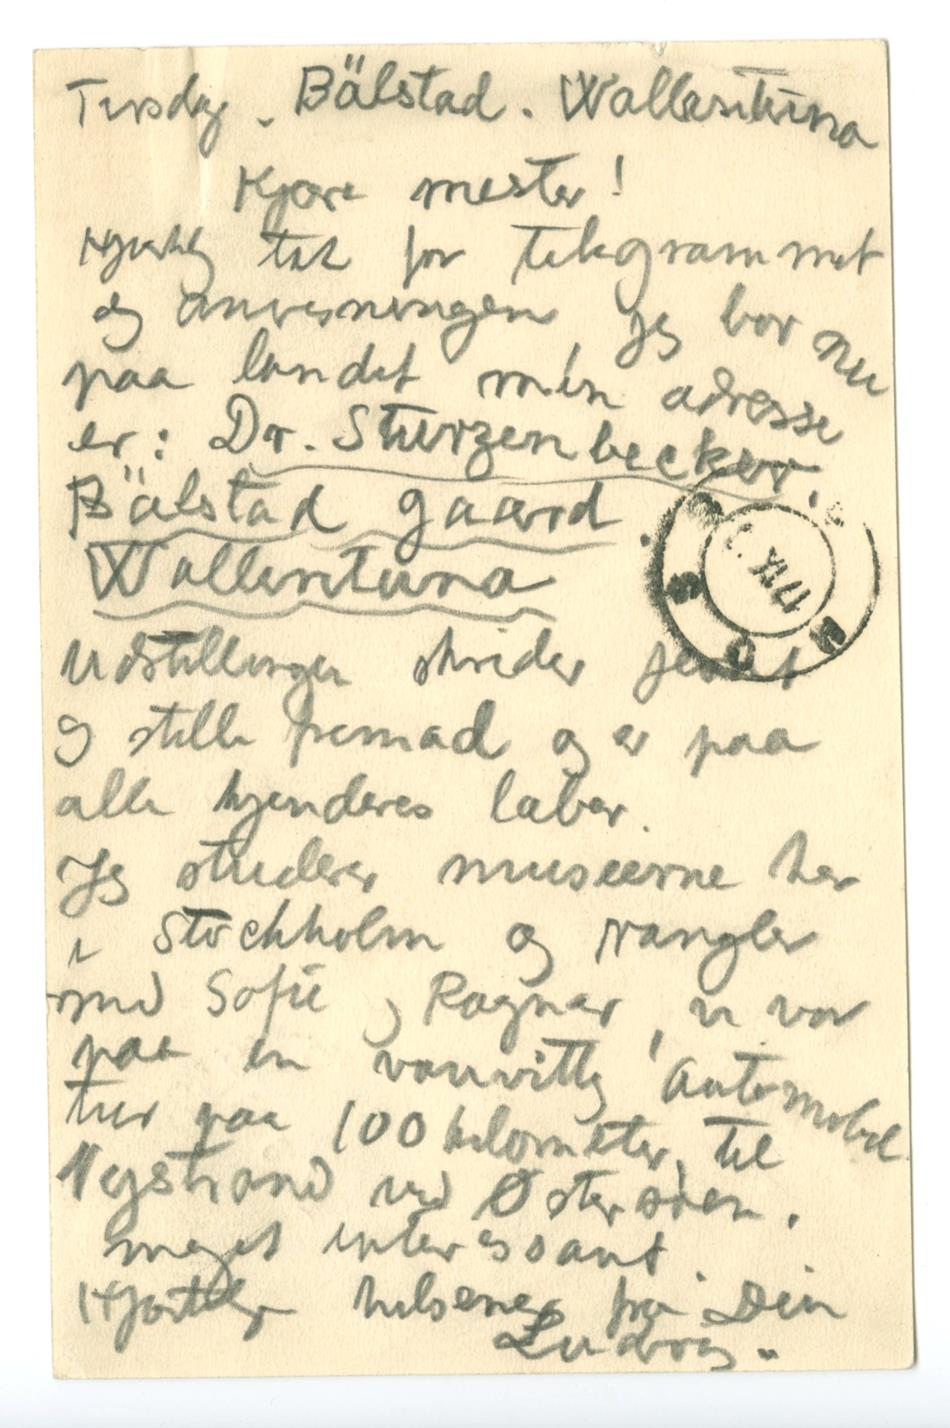 Tirsdag. Bälstad. Wallentuna
Kjære mester!
Hjertelig tak for telegrammet
og anvisningen Jeg bor nu
paa landet min adresse
er: Dr. Sturzenbecker.
Bälstad gaard
Wallentuna
Udstillingen skrider jevnt
og stille fremad og er paa
alle kjenderes læber.
Jeg studerer museerne her
i Stockholm og rangler
med Sofie og Ragnar, vi var
paa en vanvittig automobil
tur paa 100 kilometer, til
Nystrand ved Østersøen.
meget interessant.
Hjertelige hilsener fra Din
Ludvig.
17 IX